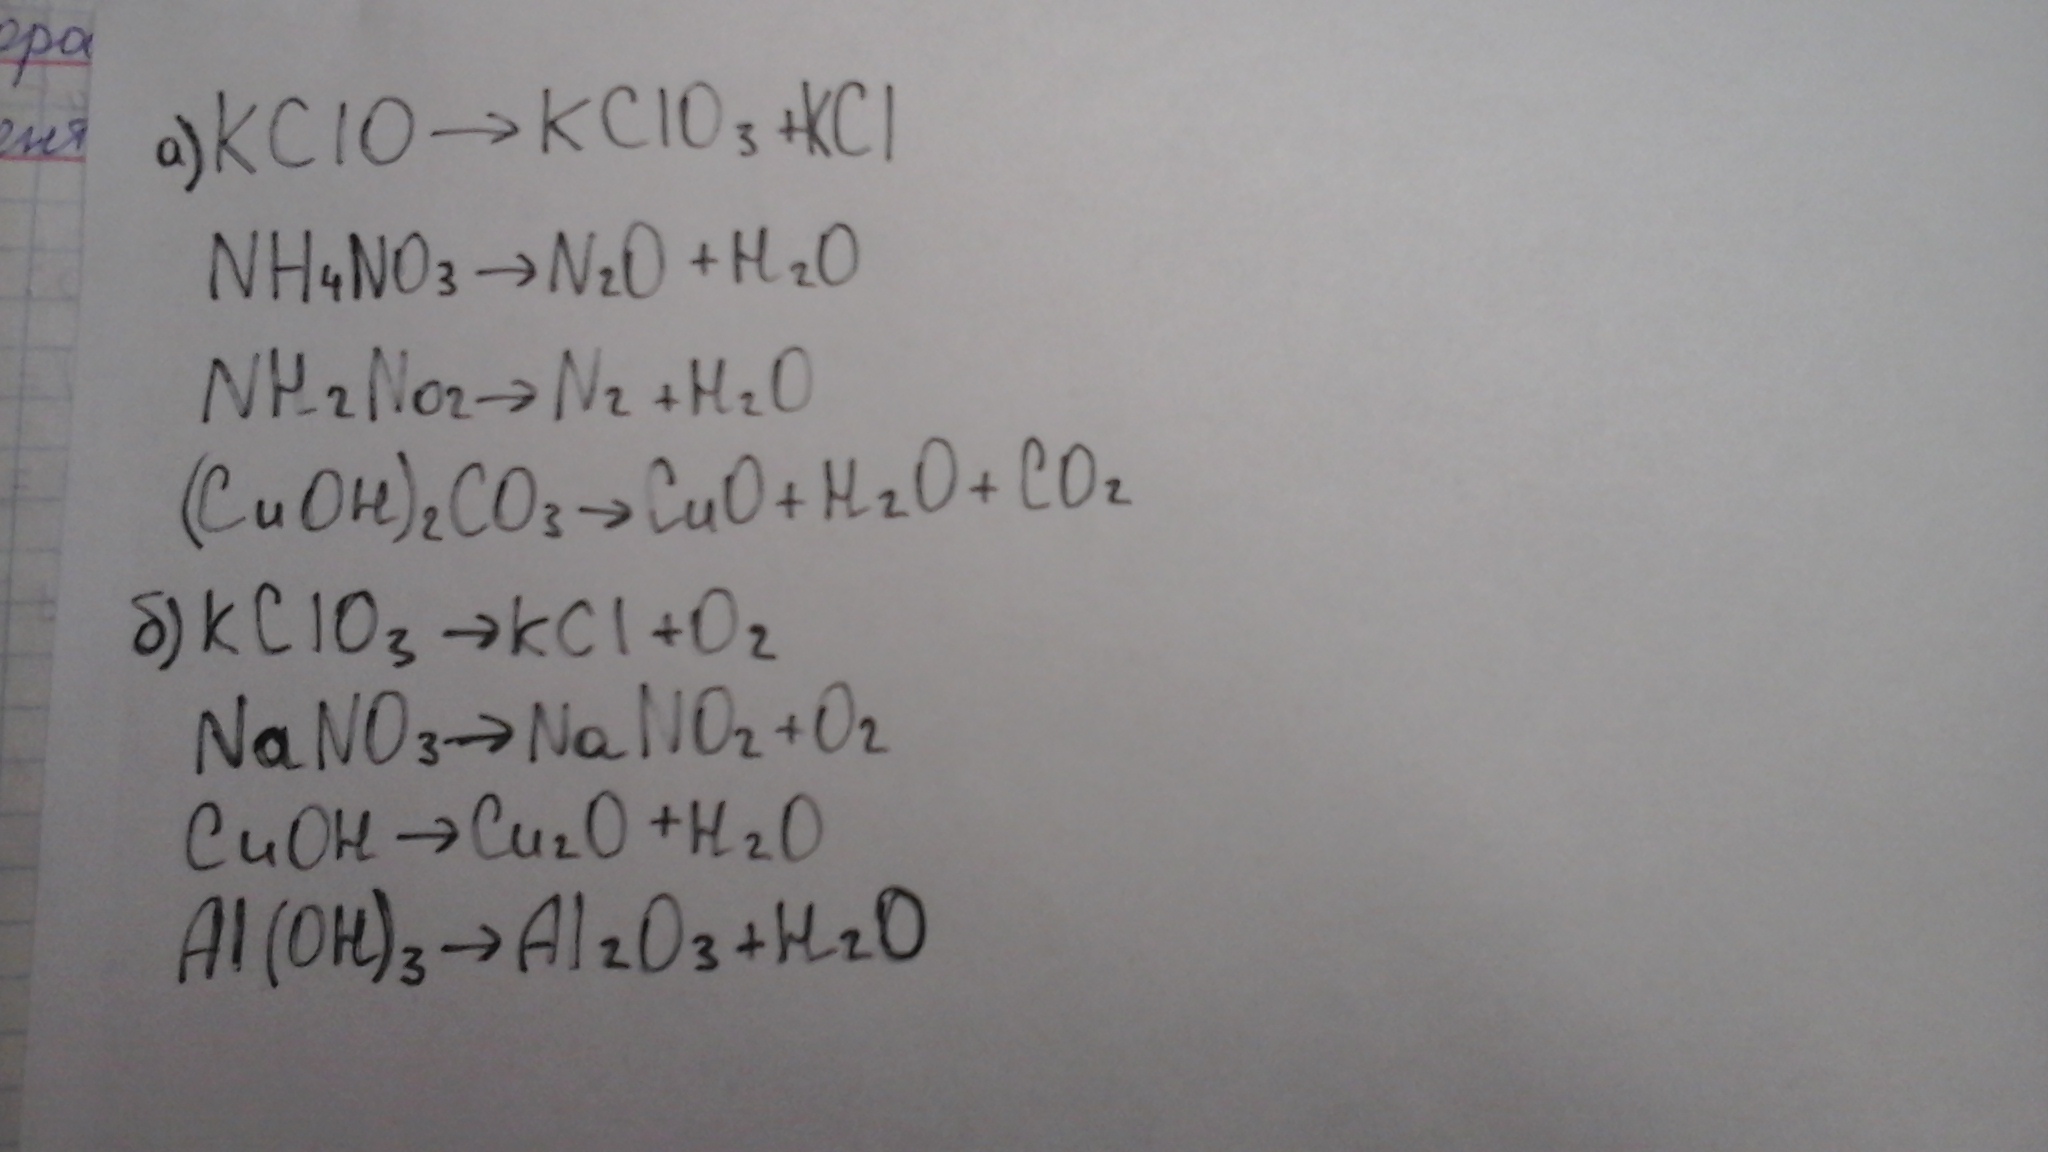 ора
еня
а) KClO → KClO₃ + KCl
NH₄NO₃ → N₂O + H₂O
NH₂NO₂ → N₂ + H₂O
(CuOH)₂CO₃ → CuO + H₂O + CO₂
б) KClO₃ → KCl + O₂
NaNO₃ → NaNO₂ + O₂
CuOH → Cu₂O + H₂O
Al(OH)₃ → Al₂O₃ + H₂O